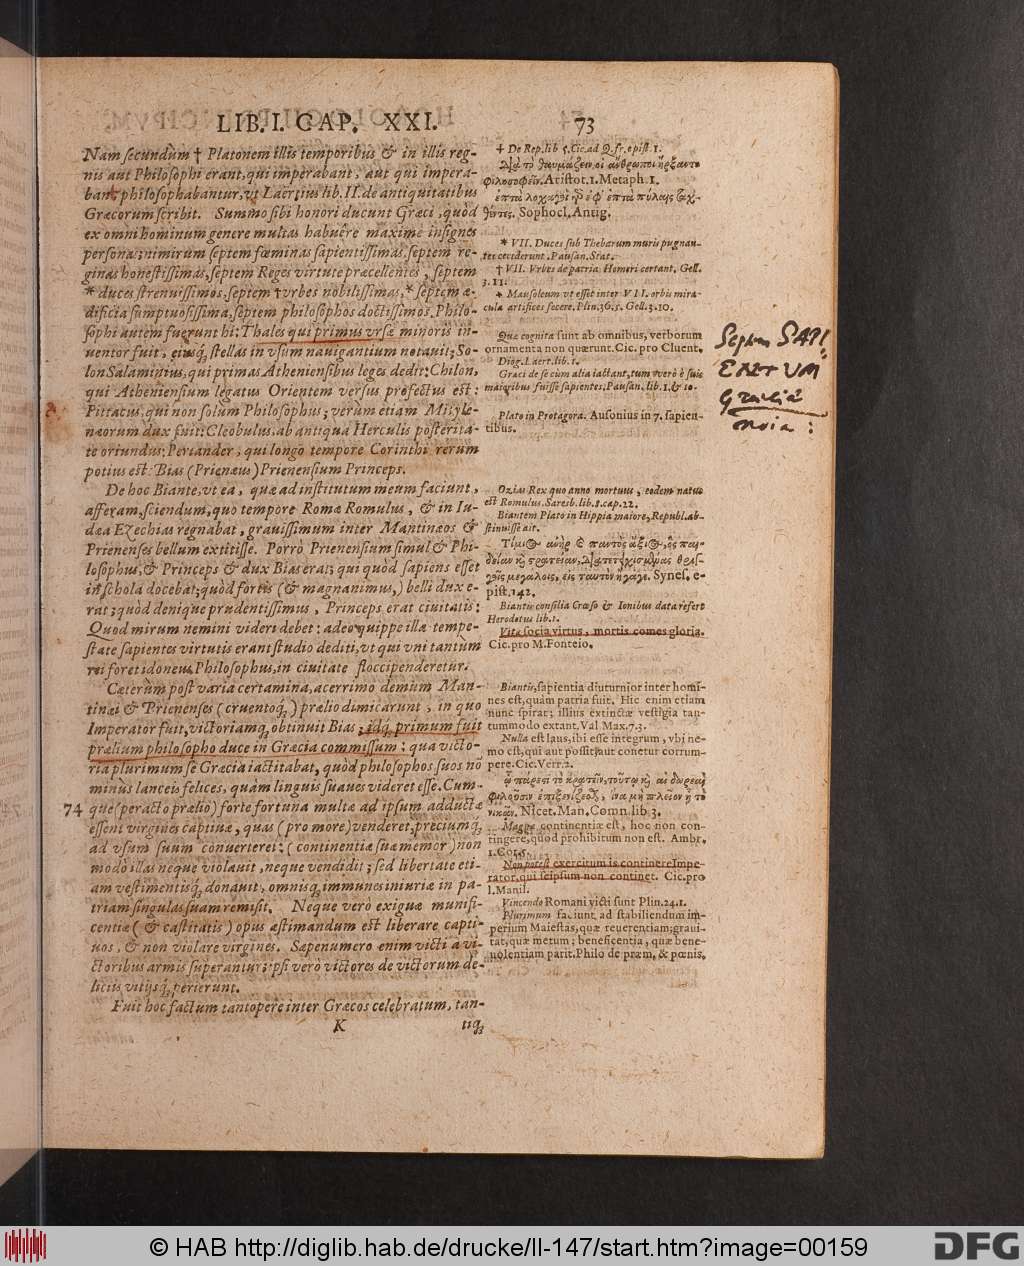 LIB. I. CAP. XXI.
73
Nam secundùm † Platonem illis temporibus & in illis reg-
nis aut Philosophi erant, qui imperabant, aut qui impera-
bant, philosophabantur, vt Laërtius lib. II. de antiquitatibus
Græcorum scribit. Summo sibi honori ducunt Græci, quòd
ex omni hominum genere multas habuêre maximè insignes
personas: nimirum septem fœminas sapientissimas, septem re-
ginas honestissimas, septem Reges virtute præcellentes, septem
* duces strenuissimos, septem † vrbes nobilissimas, * septem æ-
dificia sumptuosissima, septem philosophos doctissimos. Philo-
sophi autem fuerunt hi: Thales qui primus vrsæ minoris in-
uentor fuit, eiusq́; stellas in vsum nauigantium notauit; So-
lon Salaminius, qui primas Atheniensibus leges dedit: Chilon,
qui Atheniensium legatus Orientem versus profectus est:
Pittacus, qui non solùm Philosophus; verùm etiam Mityle-
næorum dux fuit: Cleobulus, ab antiqua Herculis posterita-
te oriundus: Periander, qui longo tempore Corinthi rerum
potius est: Bias (Prienæus) Prienensium Princeps.
De hoc Biante, vt ea, quæ ad institutum meum faciunt,
afferam, sciendum, quo tempore Romæ Romulus, & in Iu-
dæa Ezechias regnabat, grauissimum inter Mantinæos &
Prienenses bellum extitisse. Porrò Prienensium simul & Phi-
losophus, & Princeps & dux Bias erat; qui quòd sapiens esset
in schola docebat; quòd fortis (& magnanimus,) belli dux e-
rat; quòd denique prudentissimus, Princeps erat ciuitatis:
Quod mirum nemini videri debet: adeò quippe illæ tempe-
state sapientes virtutis erant studio dediti, vt qui vni tantùm
rei foret idoneus Philosophus, in ciuitate floccipenderetur.
Cæterùm post varia certamina, acerrimo demùm Man-
tinæi & Prienenses (cruentoq́;) prælio dimicarunt, in quo
Imperator fuit, victoriamq́; obtinuit Bias; idq́; primum fuit
prælium philosopho duce in Græcia commissum: qua victo-
ria plurimum se Græcia iactitabat, quòd philosophos suos nō
minùs lanceis felices, quàm linguis suaues videret esse. Cum-
74 que (peracto prælio) forte fortuna multæ ad ipsum adductæ
essent virgines captiuæ, quas (pro more) venderet, preciumq́;
ad vsum suum conuerteret: (continentiæ suæ memor) non
modò illas neque violauit, neque vendidit; sed libertate eti-
am vestimentisq́; donauit, omnisq́; immunes iniuriæ in pa-
triam singulas suam remisit. Neque verò exiguæ munifi-
centiæ (& castitatis) opus æstimandum est liberare capti-
uos, & non violare virgines. Sæpenumero enim victi à vi-
ctoribus armis superantur; ipsi verò victores de victorum de-
liciis vitijsq́; perierunt.
Fuit hoc factum tantopere inter Græcos celebratum, tan-
K
tiq́;
† De Rep. lib 5. Cic. ad Q. fr. epist. 1.
Διὰ τὸ θαυμάζειν οἱ ἄνθρωποι ἤρξαντο
φιλοσοφεῖν. Aristot. 1. Metaph. 1.
ἑπτὰ λοχαγοὶ γὸ ἐφ' ἑπτὰ πύλαις ταχ-
θέντες. Sophocl. Antig.
* VII. Duces sub Thebarum muris pugnan-
tes ceciderunt. Pausan. Stat.
† VII. Vrbes de patria Homeri certant. Gell.
3. 11.
* Mausoleum vt esset inter VII. orbis mira-
cula artifices fecere. Plin. 36. 5. Gell. 3. 10.
Quæ cognita sunt ab omnibus, verborum
ornamenta non quærunt. Cic. pro Cluent.
Diog. Laërt. lib. 1.
Græci de se cùm alia iactant, tum verò è suis
maioribus fuisse sapientes; Pausan. lib. 1. & 10.
Plato in Protagora. Ausonius in 7. sapien-
tibus.
Ozias Rex quo anno mortuus, eodem natus
est Romulus. Saresb. lib. 8. cap. 22.
Biantem Plato in Hippia maiore, Republ. ab-
stinuisse ait.
Τίμιος ἀνὴρ & παντὸς ἄξιος, ὃς παι-
δείαν κỳ στρατείαν, διατετειχισμένας θριγ-
γοῖς μεγάλοις, εἰς ταυτὸν ἤγαγε. Synes. e-
pist. 142.
Biantis consilia Crœso & Ionibus data refert
Herodotus lib. 1.
Vitæ socia virtus, mortis comes gloria.
Cic. pro M. Fonteio.
Biantis, sapientia diuturnior inter homi-
nes est, quàm patria fuit. Hic enim etiam
nunc spirat; illius extinctæ vestigia tan-
tummodo extant. Val Max. 7. 3.
Nulla est laus, ibi esse integrum, vbi ne-
mo est, qui aut possit, aut conetur corrum-
pere. Cic. Verr. 2.
ᾧ πάρεστι τὸ κρατεῖν, τούτῳ κỳ αἱ δωρεαὶ
φιλοῦσιν ἐπιξενίζεσθαι, ἵνα μὴ πλεῖον ᾖ τὸ
νικᾶν. Nicet. Man. Comn. lib 3.
Magnæ continentiæ est, hoc non con-
tingere, quod prohibitum non est. Ambr.
1. Cor. 5.
Non potest exercitum is continere Impe-
rator, qui seipsum non continet. Cic. pro
l. Manil.
Vincendo Romani victi sunt Plin. 24. 1.
Plurimum faciunt ad stabiliendum im-
perium Maiestas, quæ reuerentiam; graui-
tas, quæ metum; beneficentia, quæ bene-
uolentiam parit. Philo de præm. & pœnis.
Septem SAPI
ENTVM
Græciæ
noia :
© HAB http://diglib.hab.de/drucke/ll-147/start.htm?image=00159
DFG